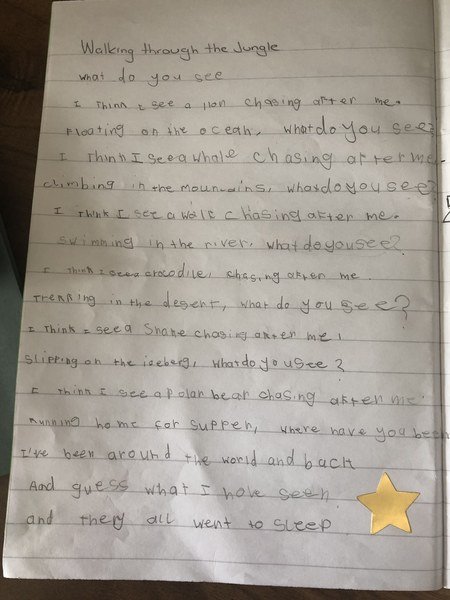 Walking through the Jungle
what do you see
I Think I see a lion chasing after me.
Floating on the ocean, what do you see?
I Think I see a whale chasing after me.
climbing in the mountains, what do you see?
I Think I see a wolf chasing after me.
swimming in the river, what do you see?
I Think I see a crocodile, chasing after me.
Trekking in the desert, what do you see?
I Think I see a Snake chasing after me!
Slipping on the iceberg, what do you see?
I Think I see a polar bear chasing after me.
Running home for supper, where have you been
I've been around the world and back
And guess what I have seen
and they all went to sleep